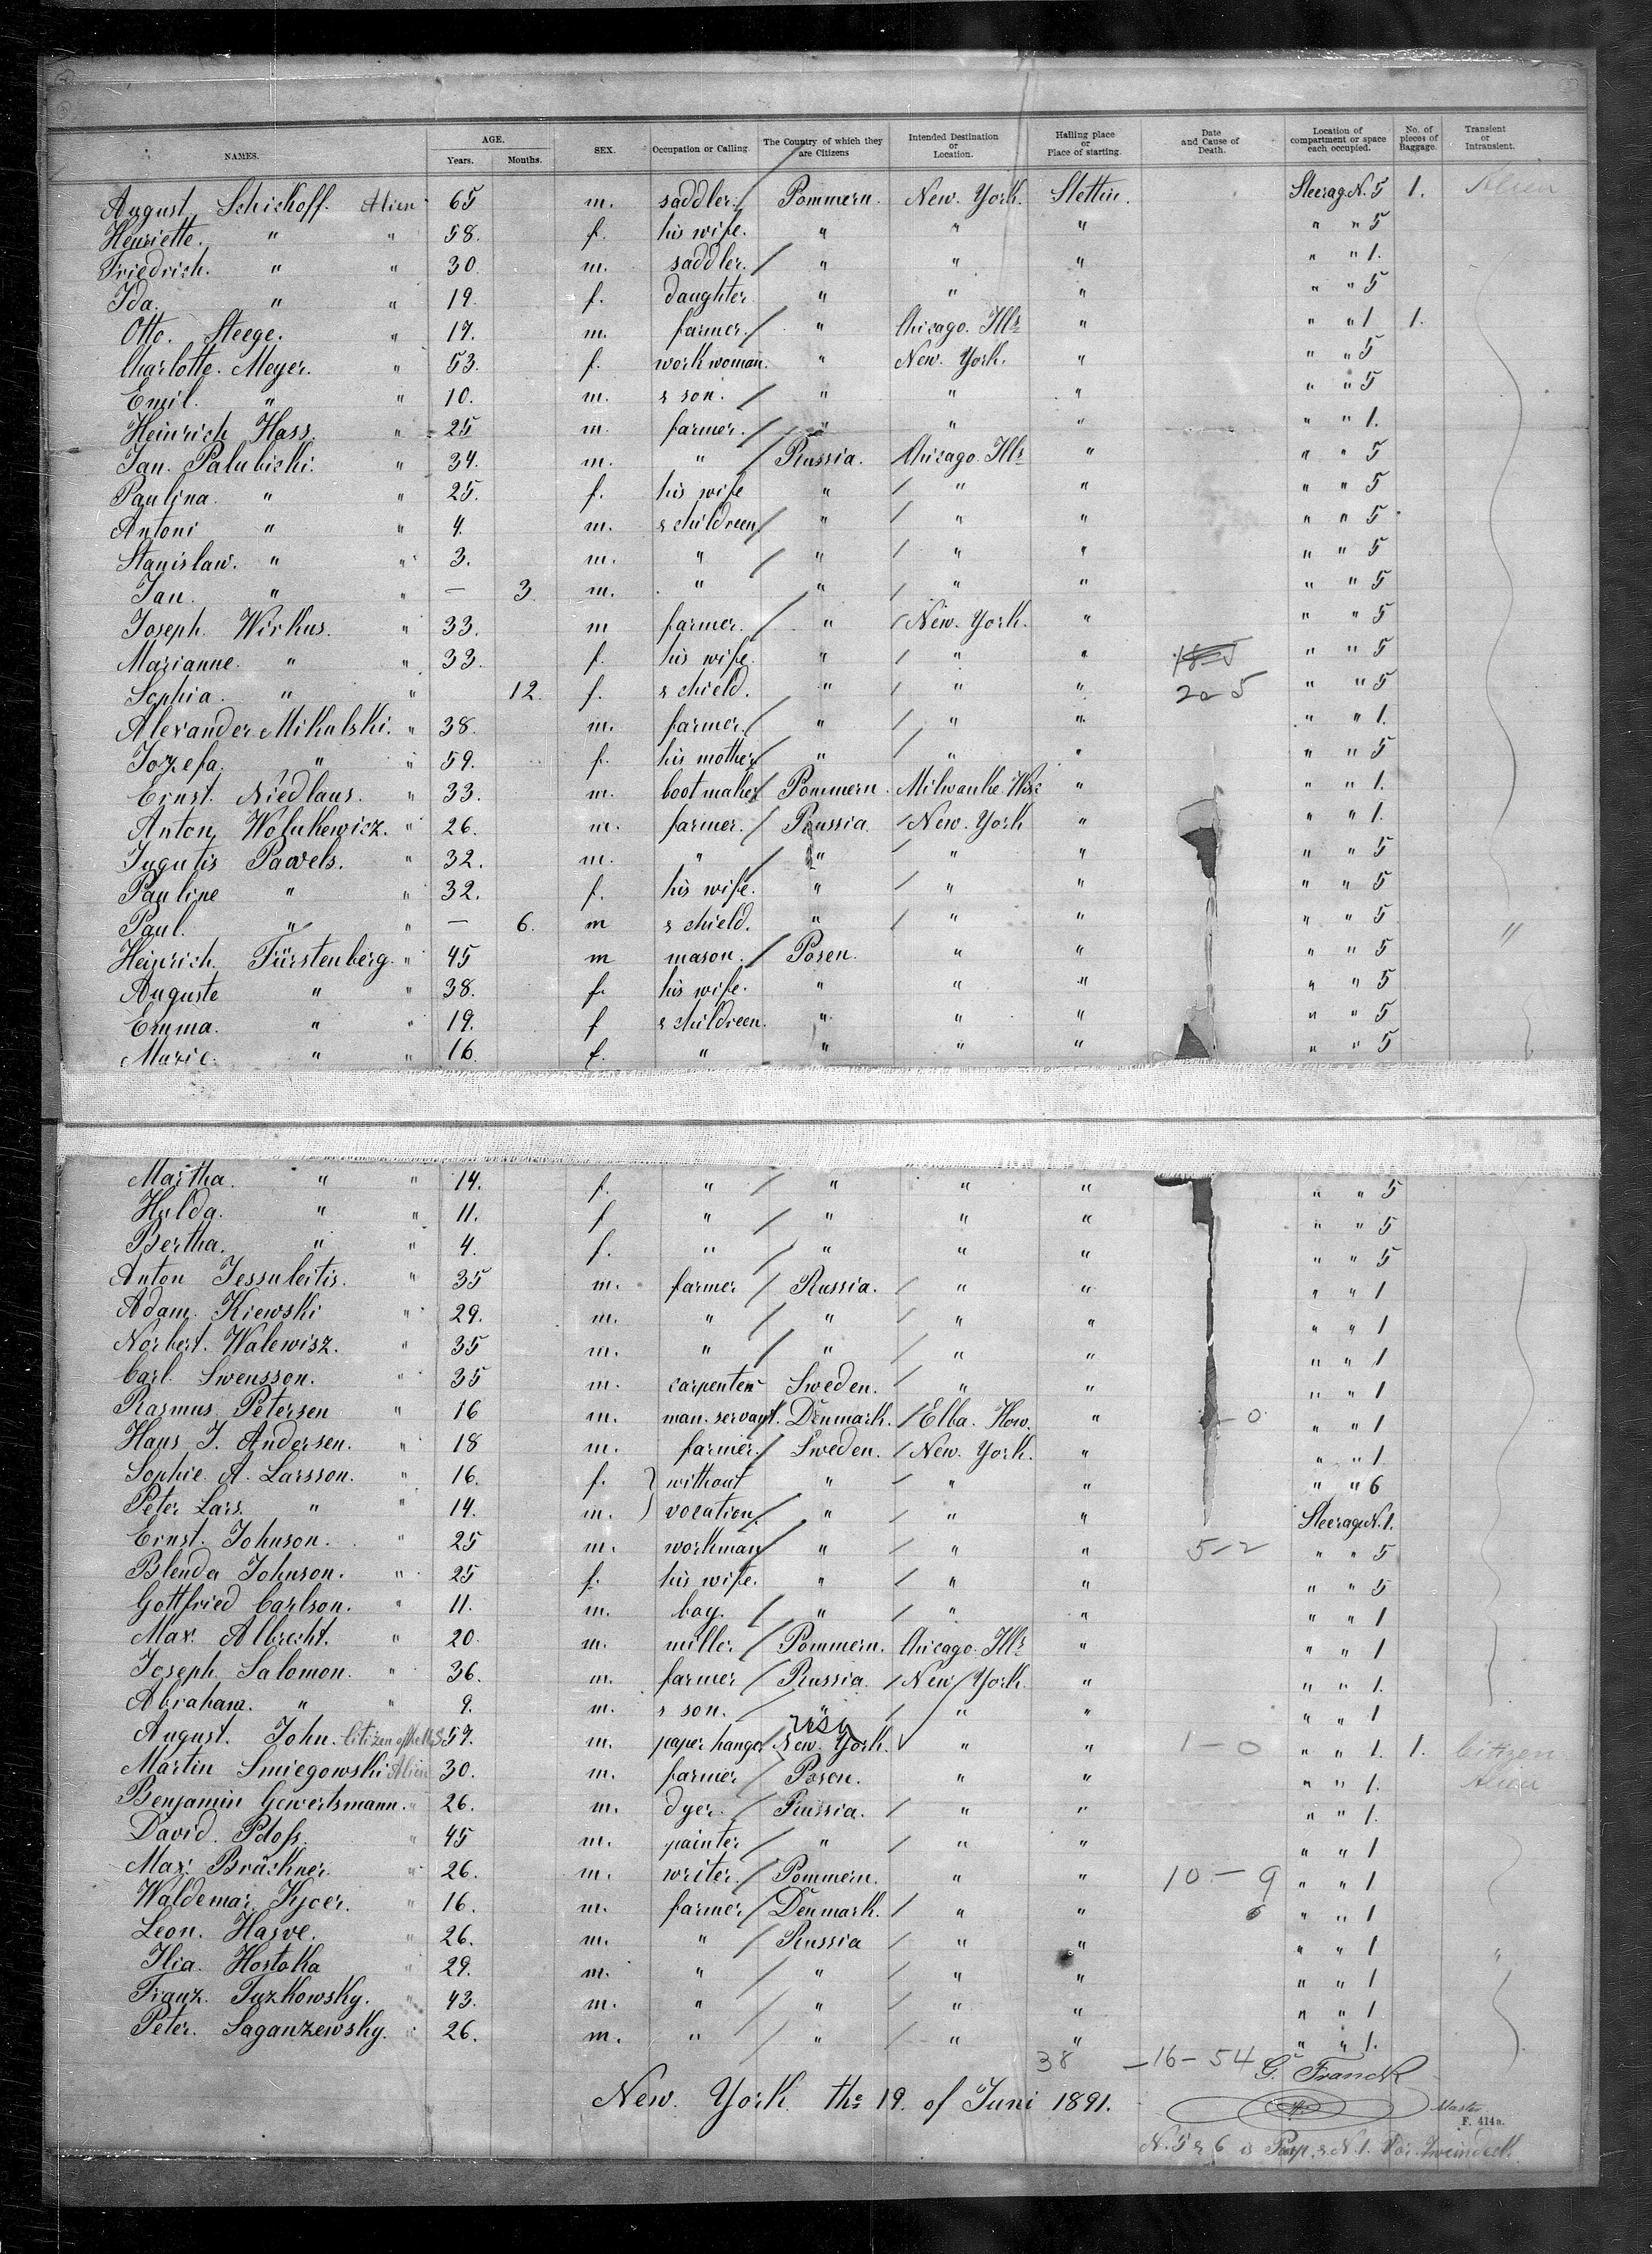 NAMES. AGE. Years. Months. SEX. Occupation or Calling. The Country of which they are Citizens Intended Destination or Location. Hailing place or Place of starting. Date and Cause of Death. Location of compartment or space each occupied. No. of pieces of Baggage. Transient or Intransient.
August Schickoff. Alien 65 m. saddler. Pommern. New. York. Stettin. Steerag. N. 5 1. Alien
Henriette. " " 58. f. his wife. " " " " " 5
Friedrich. " " 30. m. saddler. " " " " " 1.
Ida. " " 19. f. daughter " " " " " 5
Otto. Steege. " 17. m. farmer. " Chicago. Ills " " " 1 1.
Charlotte. Meyer. " 53. f. work woman. " New. York. " " " 5
Emil. " " 10. m. & son. " " " " " 5
Heinrich Hass. " 25 m. farmer. " " " " " 1.
Jan. Palubicki. " 34. m. " Russia. Chicago. Ills " " " 5
Paulina. " " 25. f. his wife " " " " " 5
Antoni " " 4. m. & childreen " " " " " 5
Stanislaw. " " 3. m. " " " " " " 5
Jan. " " — 3 m. " " " " " " 5
Joseph. Wirkus. " 33. m farmer. " New. York. " " " 5
Marianne. " " 33. f. his wife. " " " " " 5
Sophia. " " 12. f. & chield. " " " 20 5 " " 5
Alexander Mikulski. " 38. m. farmer. " " " " " 1.
Jozefa. " " 59. f. his mother " " " " " 5
Ernst. Niedlaus. " 33. m. bootmaker Pommern. Milwauke. Wisc " " " 1.
Anton Wolukewicz. " 26. m. farmer. Russia. New. York " " " 1.
Jugutis Pawels. " 32. m. " " " " " " 5
Pauline " " 32. f. his wife. " " " " " 5
Paul. " " — 6. m & chield. " " " " " 5 "
Heinrich Fürstenberg. " 45 m mason. Posen. " " " " 5
Auguste " " 38. f. his wife. " " " " " 5
Emma. " " 19. f & childreen. " " " " " 5
Marie. " " 16. f. " " " " " " 5
Martha. " " 14. f. " " " " " " 5
Hulda. " " 11. f " " " " " " 5
Bertha. " " 4. f. " " " " " " 5
Anton Jessuleitis. " 35 m. farmer Russia. " " " " 1
Adam. Kiewski " 29. m. " " " " " " 1
Norbert. Walewisz. " 35 m. " " " " " " 1
Carl. Swensson. " 35 m. carpenter Sweden. " " " " 1
Rasmus Petersen " 16 m. man. servant. Denmark. Elba. How. " 0 " " 1
Hans J. Andersen. " 18 m. farmer. Sweden. New. York. " " " 1
Sophie A. Larsson. " 16. f. } without " " " " " 6
Peter Lars. " " 14. m. } vocation. " " " Steerage N. 1.
Ernst. Johnson. " 25 m. workman " " " 5-2 " " 5
Blenda Johnson. " 25 f. his wife. " " " " " 5
Gottfried Carlson. " 11. m. boy. " " " " " 1
Max. Albrecht. " 20. m. miller Pommern. Chicago. Ills " " " 1
Joseph. Salomon. " 36. m. farmer Russia. New York. " " " 1.
Abraham. " " 9. m. & son. " " " " " 1
August. John. Citizen of the U.S. 57. m. paper hanger USA New. York. " " 1-0 " " 1. 1. Citizen
Martin Smiegowski Alien 30. m. farmer Posen. " " " " 1. Alien
Benjamin Gewertsmann. " 26. m. dyer. Russia. " " " " 1.
David. " 45 m. painter " " " " " 1
Max. Brückner. " 26. m. writer. Pommern. " " 10-9 " " 1
Waldemar Kjoer. " 16. m. farmer Denmark. " " " " 1
Leon. Hasve. " 26. m. " Russia " " " " 1
Ilia. Hostoka " 29. m. " " " " " " 1 "
Franz. Tuzkowsky. " 43. m. " " " " " " 1
Peter. Saganzewsky. " 26. m. " " " " " " 1.
38 -16-54 G. Franck
New. York. the 19. of Juni 1891. Master.
F. 414a.
N. 5 & 6 is Poop. & N. 1.